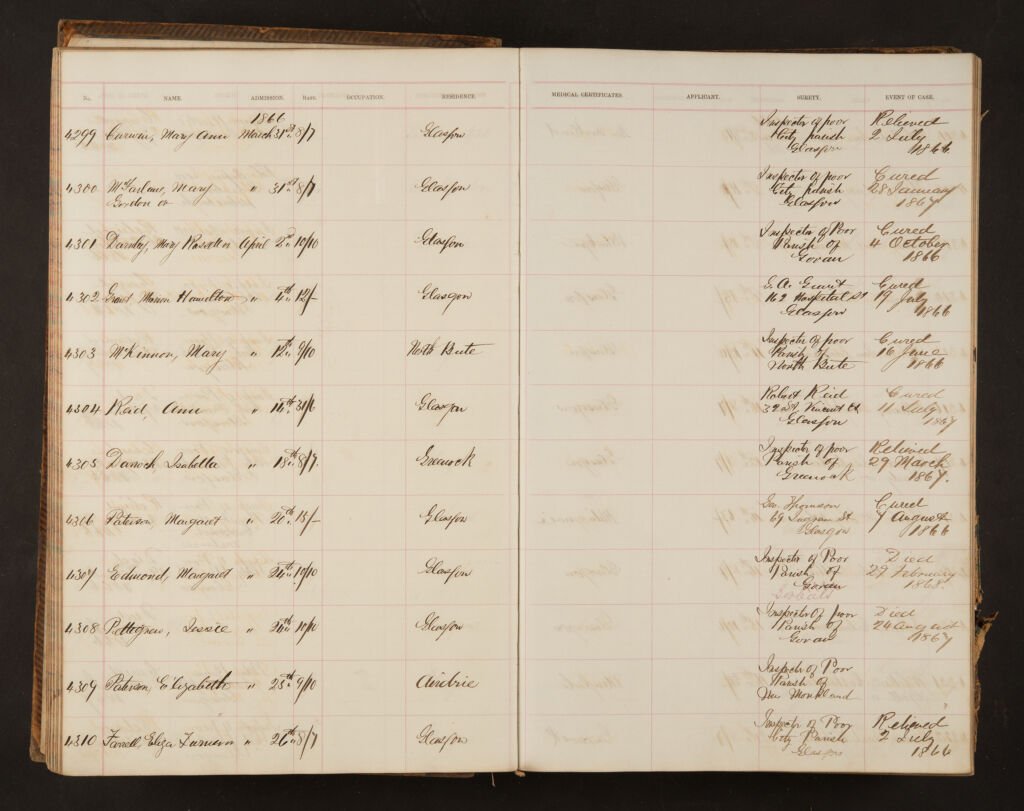 No. NAME. ADMISSION. RATE. OCCUPATION. RESIDENCE. MEDICAL CERTIFICATES. APPLICANT. SURETY. EVENT OF CASE.
1866
4299 Curwin, Mary Ann March 31st 8/7 Glasgow Inspector of poor Relieved
City parish 2 July
Glasgow 1866
4300 McFarlane, Mary " 31st 8/7 Glasgow Inspector of poor Cured
Gordon or City parish 28 January
Glasgow 1867
4301 Darnley, Mary April 2nd 10/10 Glasgow Inspector of Poor Cured
Parish of 4 October
Govan 1866
4302 Grant Marion Hamilton " 4th 12/- Glasgow G. A. Grant Cured
162 Hospital St 19 July
Glasgow 1866
4303 McKinnon, Mary " 12th 9/10 North Bute Inspector of poor Cured
Parish of 16 June
North Bute 1866
4304 Reid, Ann " 31/6 Glasgow Robert Reid Cured
St. Vincent 11 July
Glasgow 1867
4305 Darroch Isabella " 18th 8/9 Greenock Inspector of poor Relieved
Parish of 29 March
Greenock 1867.
4306 Paterson, Margaret " 20th 15/- Glasgow Geo. Thomson Cured
69 Ingram St 7 August
Glasgow 1866
4307 Edmond, Margaret " 24th 10/10 Glasgow Inspector of Poor Died
Parish of 27 February
Govan 1868.
Gorbals
4308 Pettegrew, Jessie " 24th 10/10 Glasgow Inspector of poor Died
Parish of 24 August
Govan 1867
4309 Paterson, Elizabeth " 25th 9/10 Airdrie Inspector of Poor
Parish of
New Monkland
4310 Farrell, Eliza " 26th 8/7 Glasgow Inspector of Poor Relieved
City Parish 2 July
Glasgow 1866